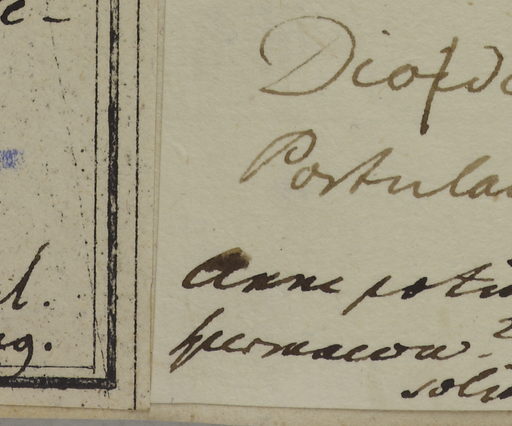 e-
l.
g.
Diosd
Portula
Anne potiu
spermacoce?
soli